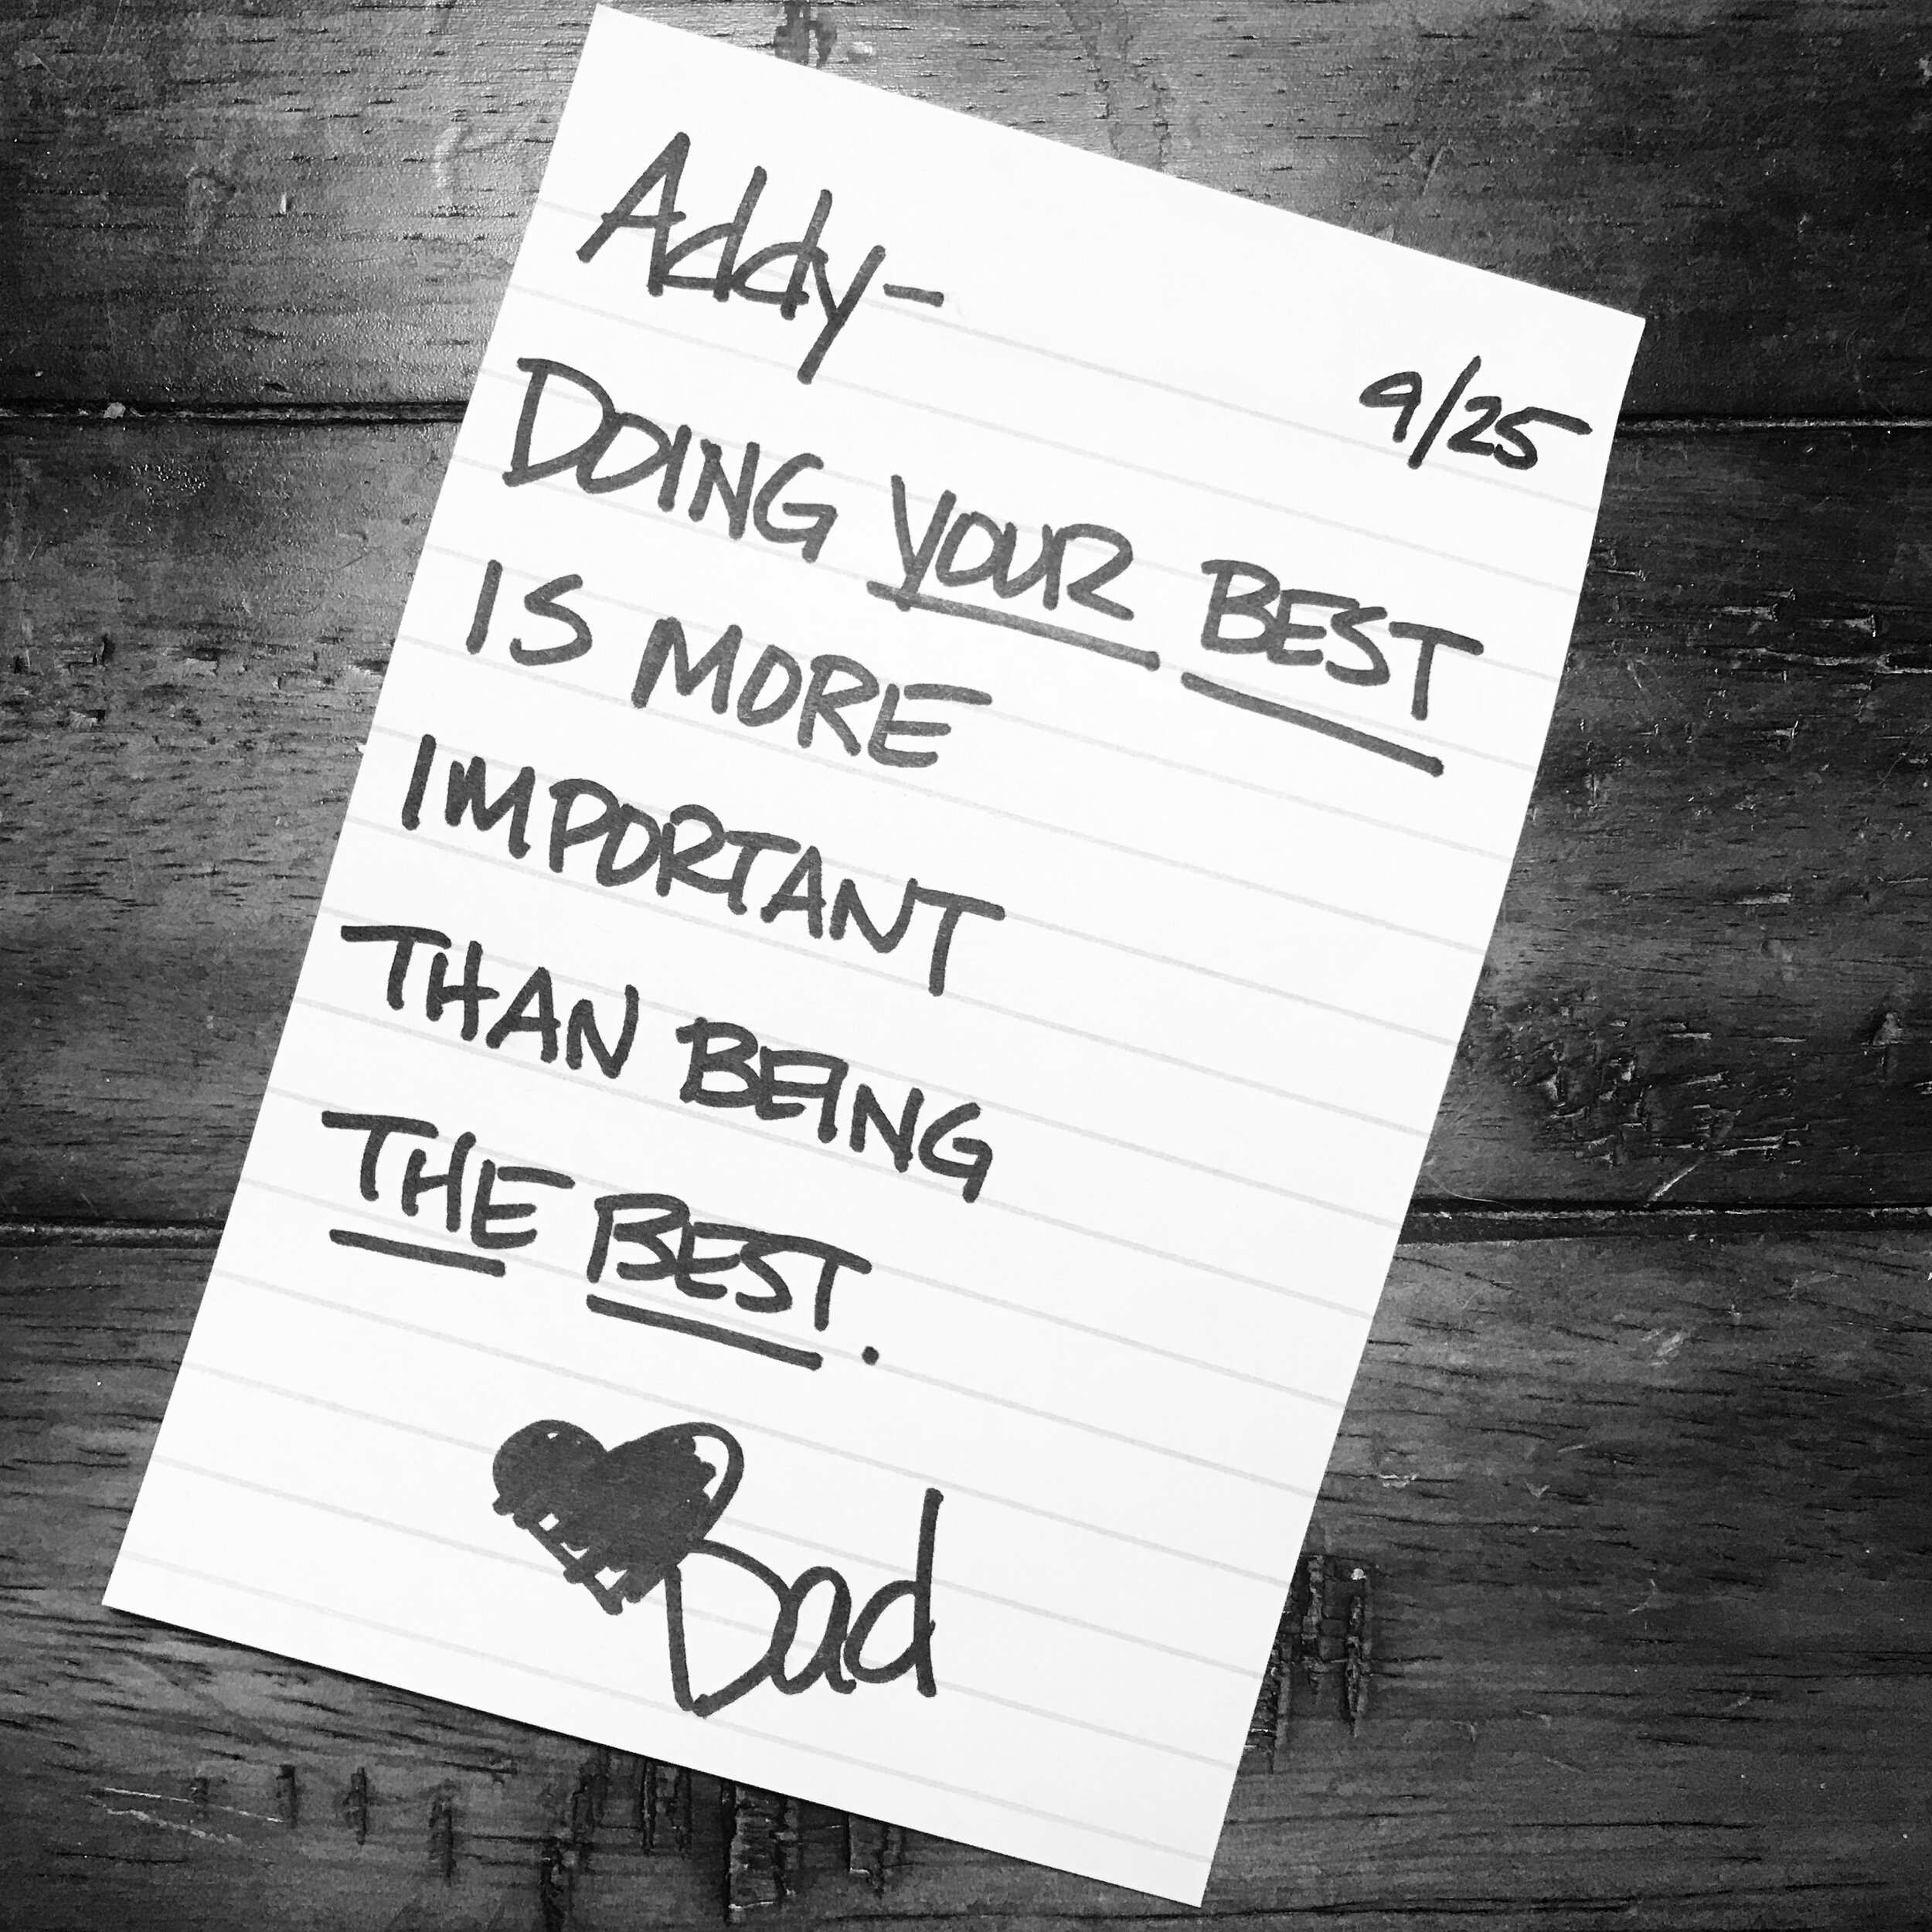 Addy-
9/25
DOING YOUR BEST
IS MORE
IMPORTANT
THAN BEING
THE BEST.
Dad